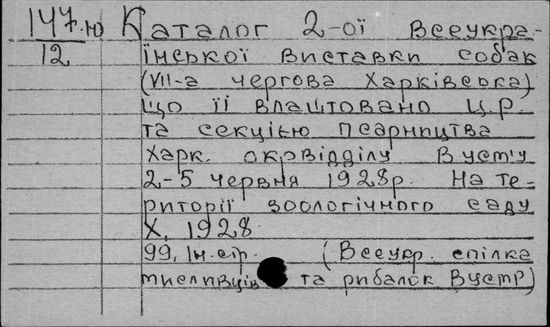 147.ю Каталог 2-ої Всеукра-
12 їнської виставки собак
(VII-а чергова Харківська)
що її влаштовано Ц.Р.
та секцією псарництва
Харк. окрвідділу Вуст'у
2-5 червня 1928р. На те-
риторії зоологічного саду
Х, 1928
99, Iн. стр. (Всеукр. спілка
мисливців та рибалок Вустр)